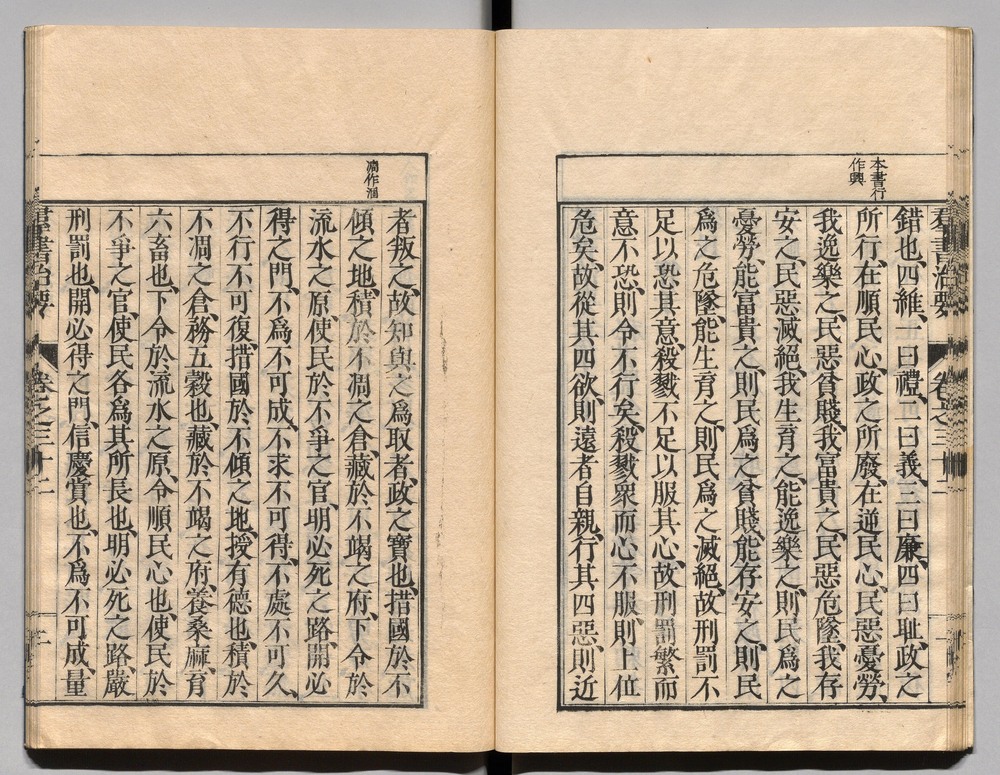 本書行
作興
群書治要 卷之三十二
錯也、四維、一曰禮、二曰義、三曰廉、四曰耻、政之
所行、在順民心、政之所廢、在逆民心、民惡憂勞、
我逸樂之、民惡貧賤、我富貴之、民惡危墜、我存
安之、民惡滅絕、我生育之、能逸樂之、則民爲之
憂勞、能富貴之、則民爲之貧賤、能存安之、則民
爲之危墜、能生育之、則民爲之滅絕、故刑罰不
足以恐其意、殺戮不足以服其心、故刑罰繁而
意不恐、則令不行矣、殺戮衆而心不服、則上位
危矣、故從其四欲、則遠者自親、行其四惡、則近
凅作涸
者叛之、故知與之爲取者、政之寶也、措國於不
傾之地、積於不凅之倉、藏於不竭之府、下令於
流水之原、使民於不爭之官、明必死之路、開必
得之門、不爲不可成、不求不可得、不處不可久、
不行不可復、措國於不傾之地、授有德也、積於
不凅之倉、務五穀也、藏於不竭之府、養桑麻、育
六畜也、下令於流水之原、令順民心也、使民於
不爭之官、使民各爲其所長也、明必死之路、嚴
刑罰也、開必得之門、信慶賞也、不爲不可成、量
群書治要 卷之三十二 二